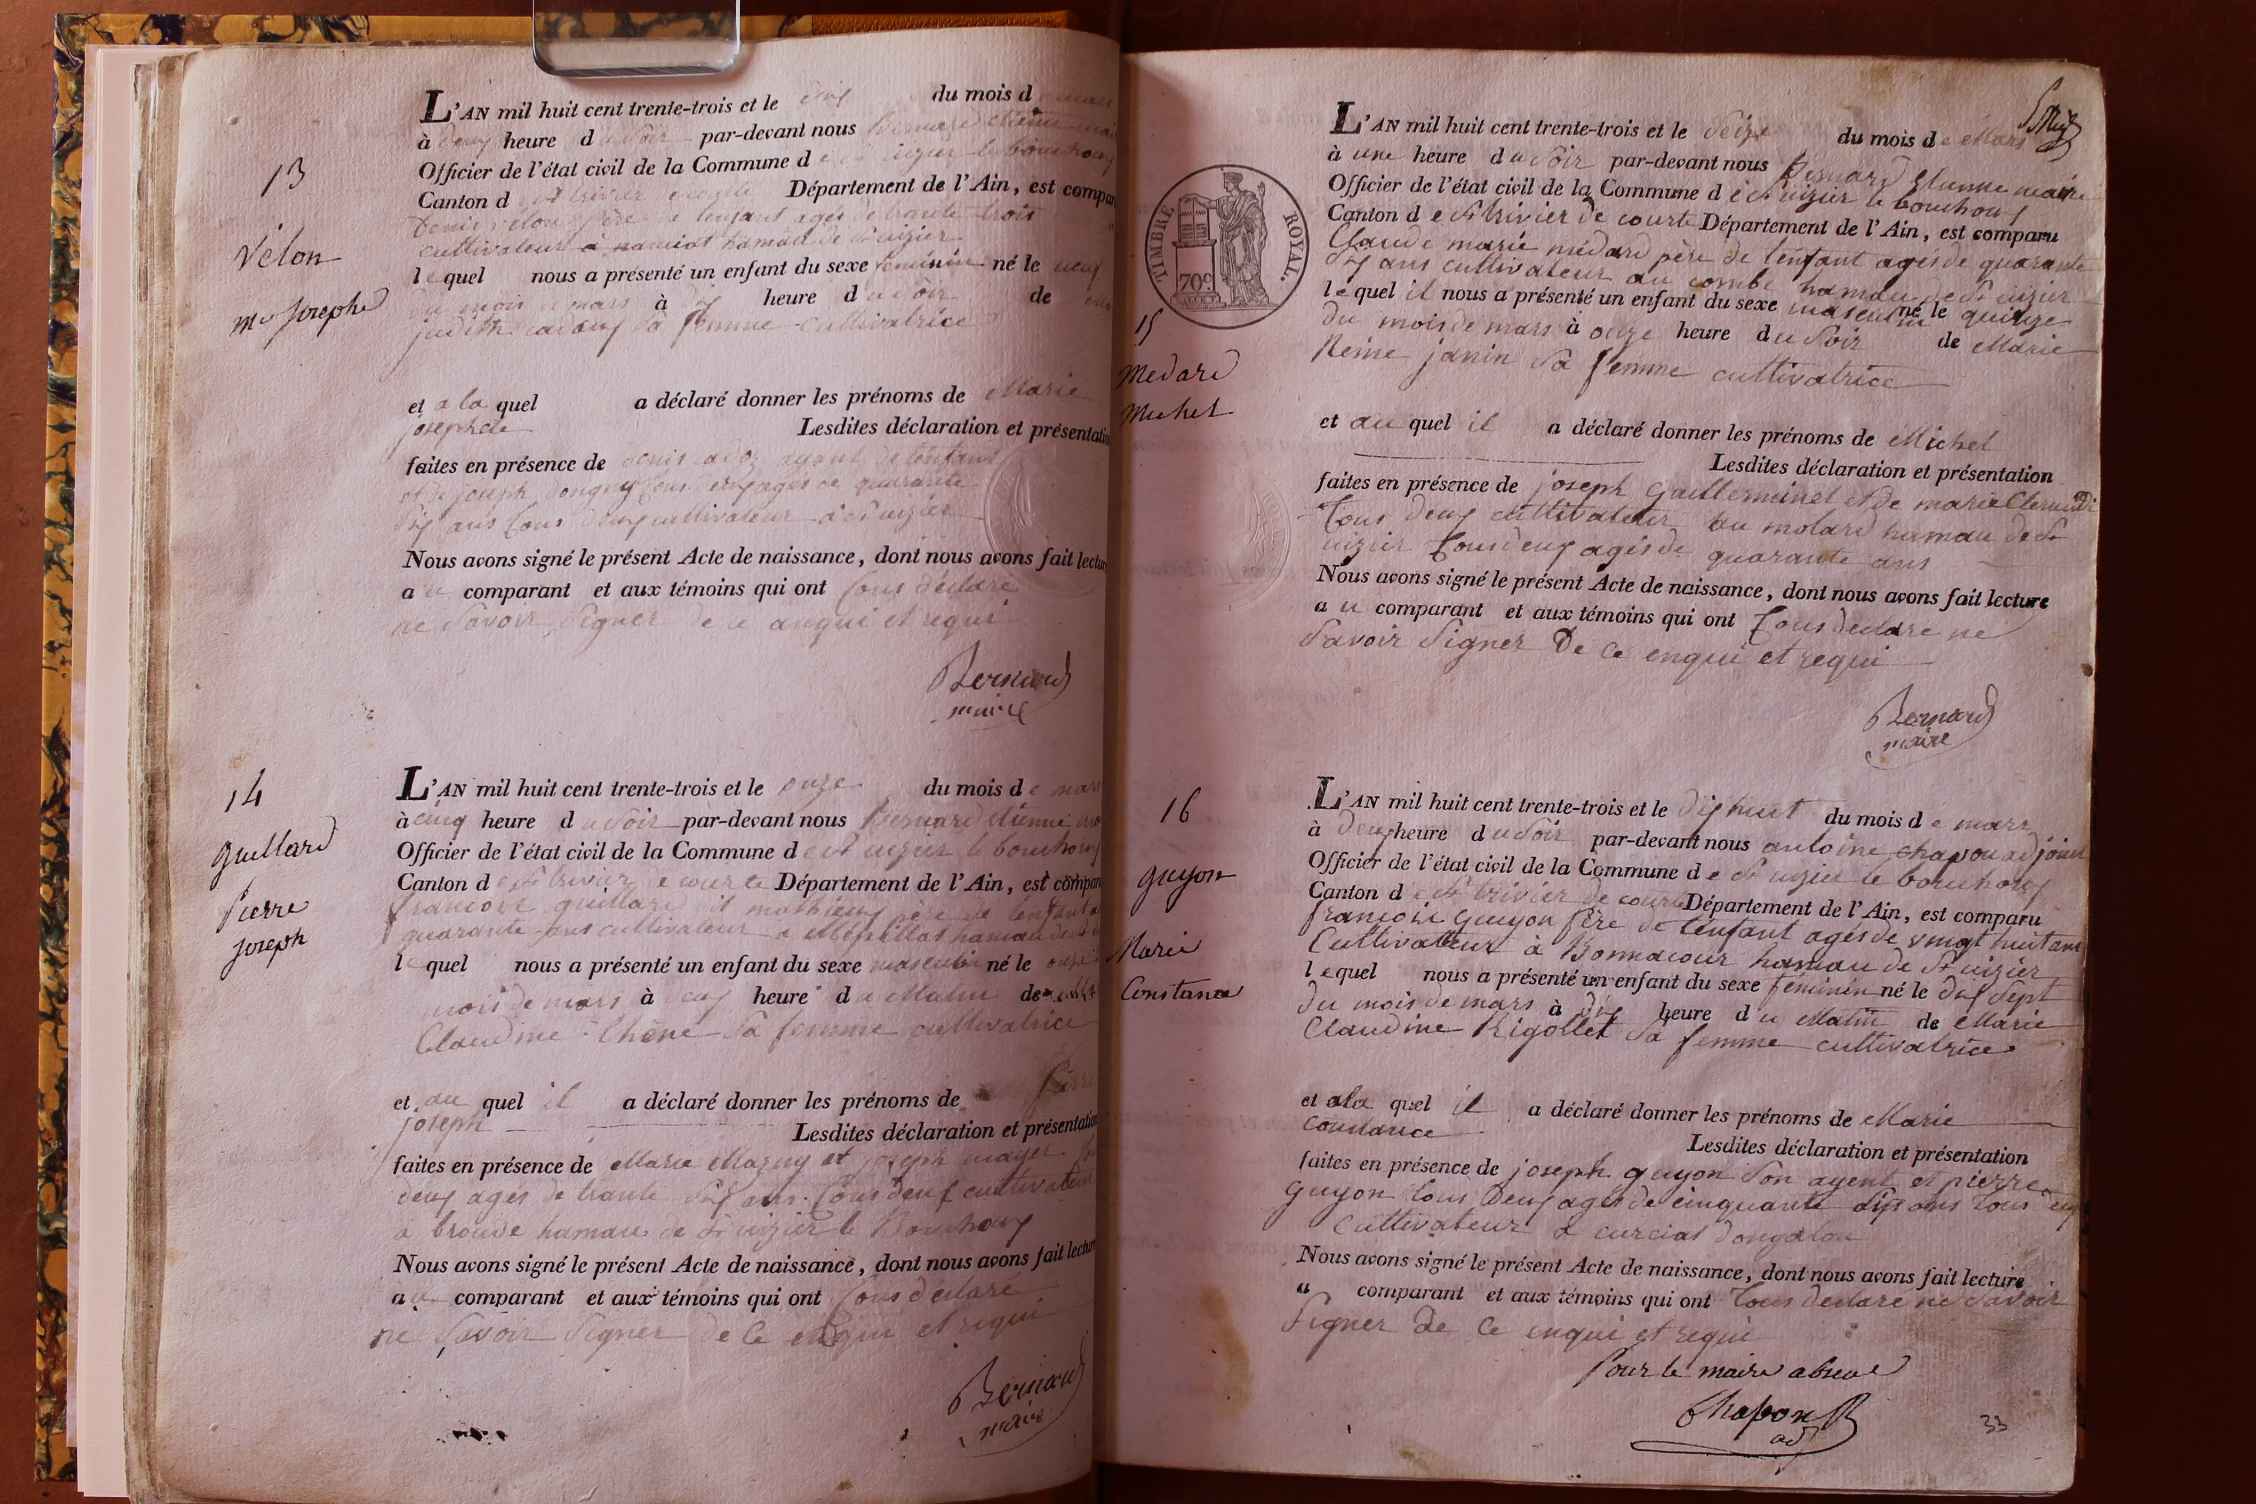 13
Vélon
Mie Josephe
L'AN mil huit cent trente-trois et le du mois de mars
à deux heure du Soir par-devant nous Bernard étienne
Officier de l'état civil de la Commune de le bouchoux
Canton de St trivier Département de l'Ain, est compar
père de lenfant agés de trante trois
cultivateur à hamau de St nizier
lequel nous a présenté un enfant du sexe féminin né le neuf
du mois de mars à heure du Soir de
judith Sa femme cultivatrice
et a la quel a déclaré donner les prénoms de Marie
josephete Lesdites déclaration et présentatio
faites en présence de denis ayeul de lenfant
et de joseph tous deux agés de quarante
Six ans tous deux cultivateur à St nizier
Nous avons signé le présent Acte de naissance, dont nous avons fait lectur
au comparant et aux témoins qui ont tous déclare
ne Savoir Signer de ce enqui et requi
Bernard
maire
14
guillard
Pierre
joseph
L'AN mil huit cent trente-trois et le onze du mois de mars
à cinq heure du Soir par-devant nous Bernard étienne
Officier de l'état civil de la Commune de St nizier le bouchoux
Canton de St trivier de courte Département de l'Ain, est compar
francois guillard père de lenfant
quarante ans cultivateur a hamau de
lequel nous a présenté un enfant du sexe masculin né le onze
mois de mars à deux heure du Matin de
Claudine Chêne Sa femme cultivatrice
et au quel il a déclaré donner les prénoms de Pierre
joseph Lesdites déclaration et présentatio
faites en présence de Marie Mazuy et joseph mayer
deux agés de trante Six ans tous deux cultivateur
à broude hamau de St nizier le Bouchoux
Nous avons signé le présent Acte de naissance, dont nous avons fait lectur
au comparant et aux témoins qui ont tous déclare
ne Savoir Signer de ce enqui et requi
Bernard
maire
TIMBRE ROYAL.
70c.
15
Medard
Michel
L'AN mil huit cent trente-trois et le Seize du mois de Mars
à une heure du Soir par-devant nous Bernard étienne maire
Officier de l'état civil de la Commune de St nizier le bouchoux
Canton de St trivier de courte Département de l'Ain, est comparu
Claude marie médard père de lenfant agés de quarante
Six ans cultivateur au combe hamau de St nizier
lequel il nous a présenté un enfant du sexe masculin né le quinze
du mois de mars à onze heure du Soir de Marie
Reine janin Sa femme cultivatrice
et au quel il a déclaré donner les prénoms de Michel
Lesdites déclaration et présentation
faites en présence de joseph Guilleminet et de marie
tous deux cultivateur au molard hamau de St
nizier tous deux agés de quarante ans
Nous avons signé le présent Acte de naissance, dont nous avons fait lecture
au comparant et aux témoins qui ont tous déclare ne
Savoir Signer De ce enqui et requi
Bernard
maire
16
guyon
Marie
Constance
L'AN mil huit cent trente-trois et le dix huit du mois de mars
à deux heure du Soir par-devant nous antoine chapon adjoint
Officier de l'état civil de la Commune de St nizier le bouchoux
Canton de St trivier de courte Département de l'Ain, est comparu
françois Guyon père de lenfant agés de vingt huit ans
Cultivateur à Bonnacour hamau de St nizier
lequel nous a présenté un enfant du sexe féminin né le dix Sept
du mois de mars à dix heure du Matin de Marie
Claudine Rigollet Sa femme cultivatrice
et ala quel il a déclaré donner les prénoms de Marie
constance Lesdites déclaration et présentation
faites en présence de joseph guyon Son ayent et pierre
guyon tous deux agés de cinquante Six ans tous deux
cultivateur à curciat dongalon
Nous avons signé le présent Acte de naissance, dont nous avons fait lecture
a comparant et aux témoins qui ont tous déclare ne Savoir
Signer De ce enqui et requi
Pour le maire absent
Chapon
adj
33